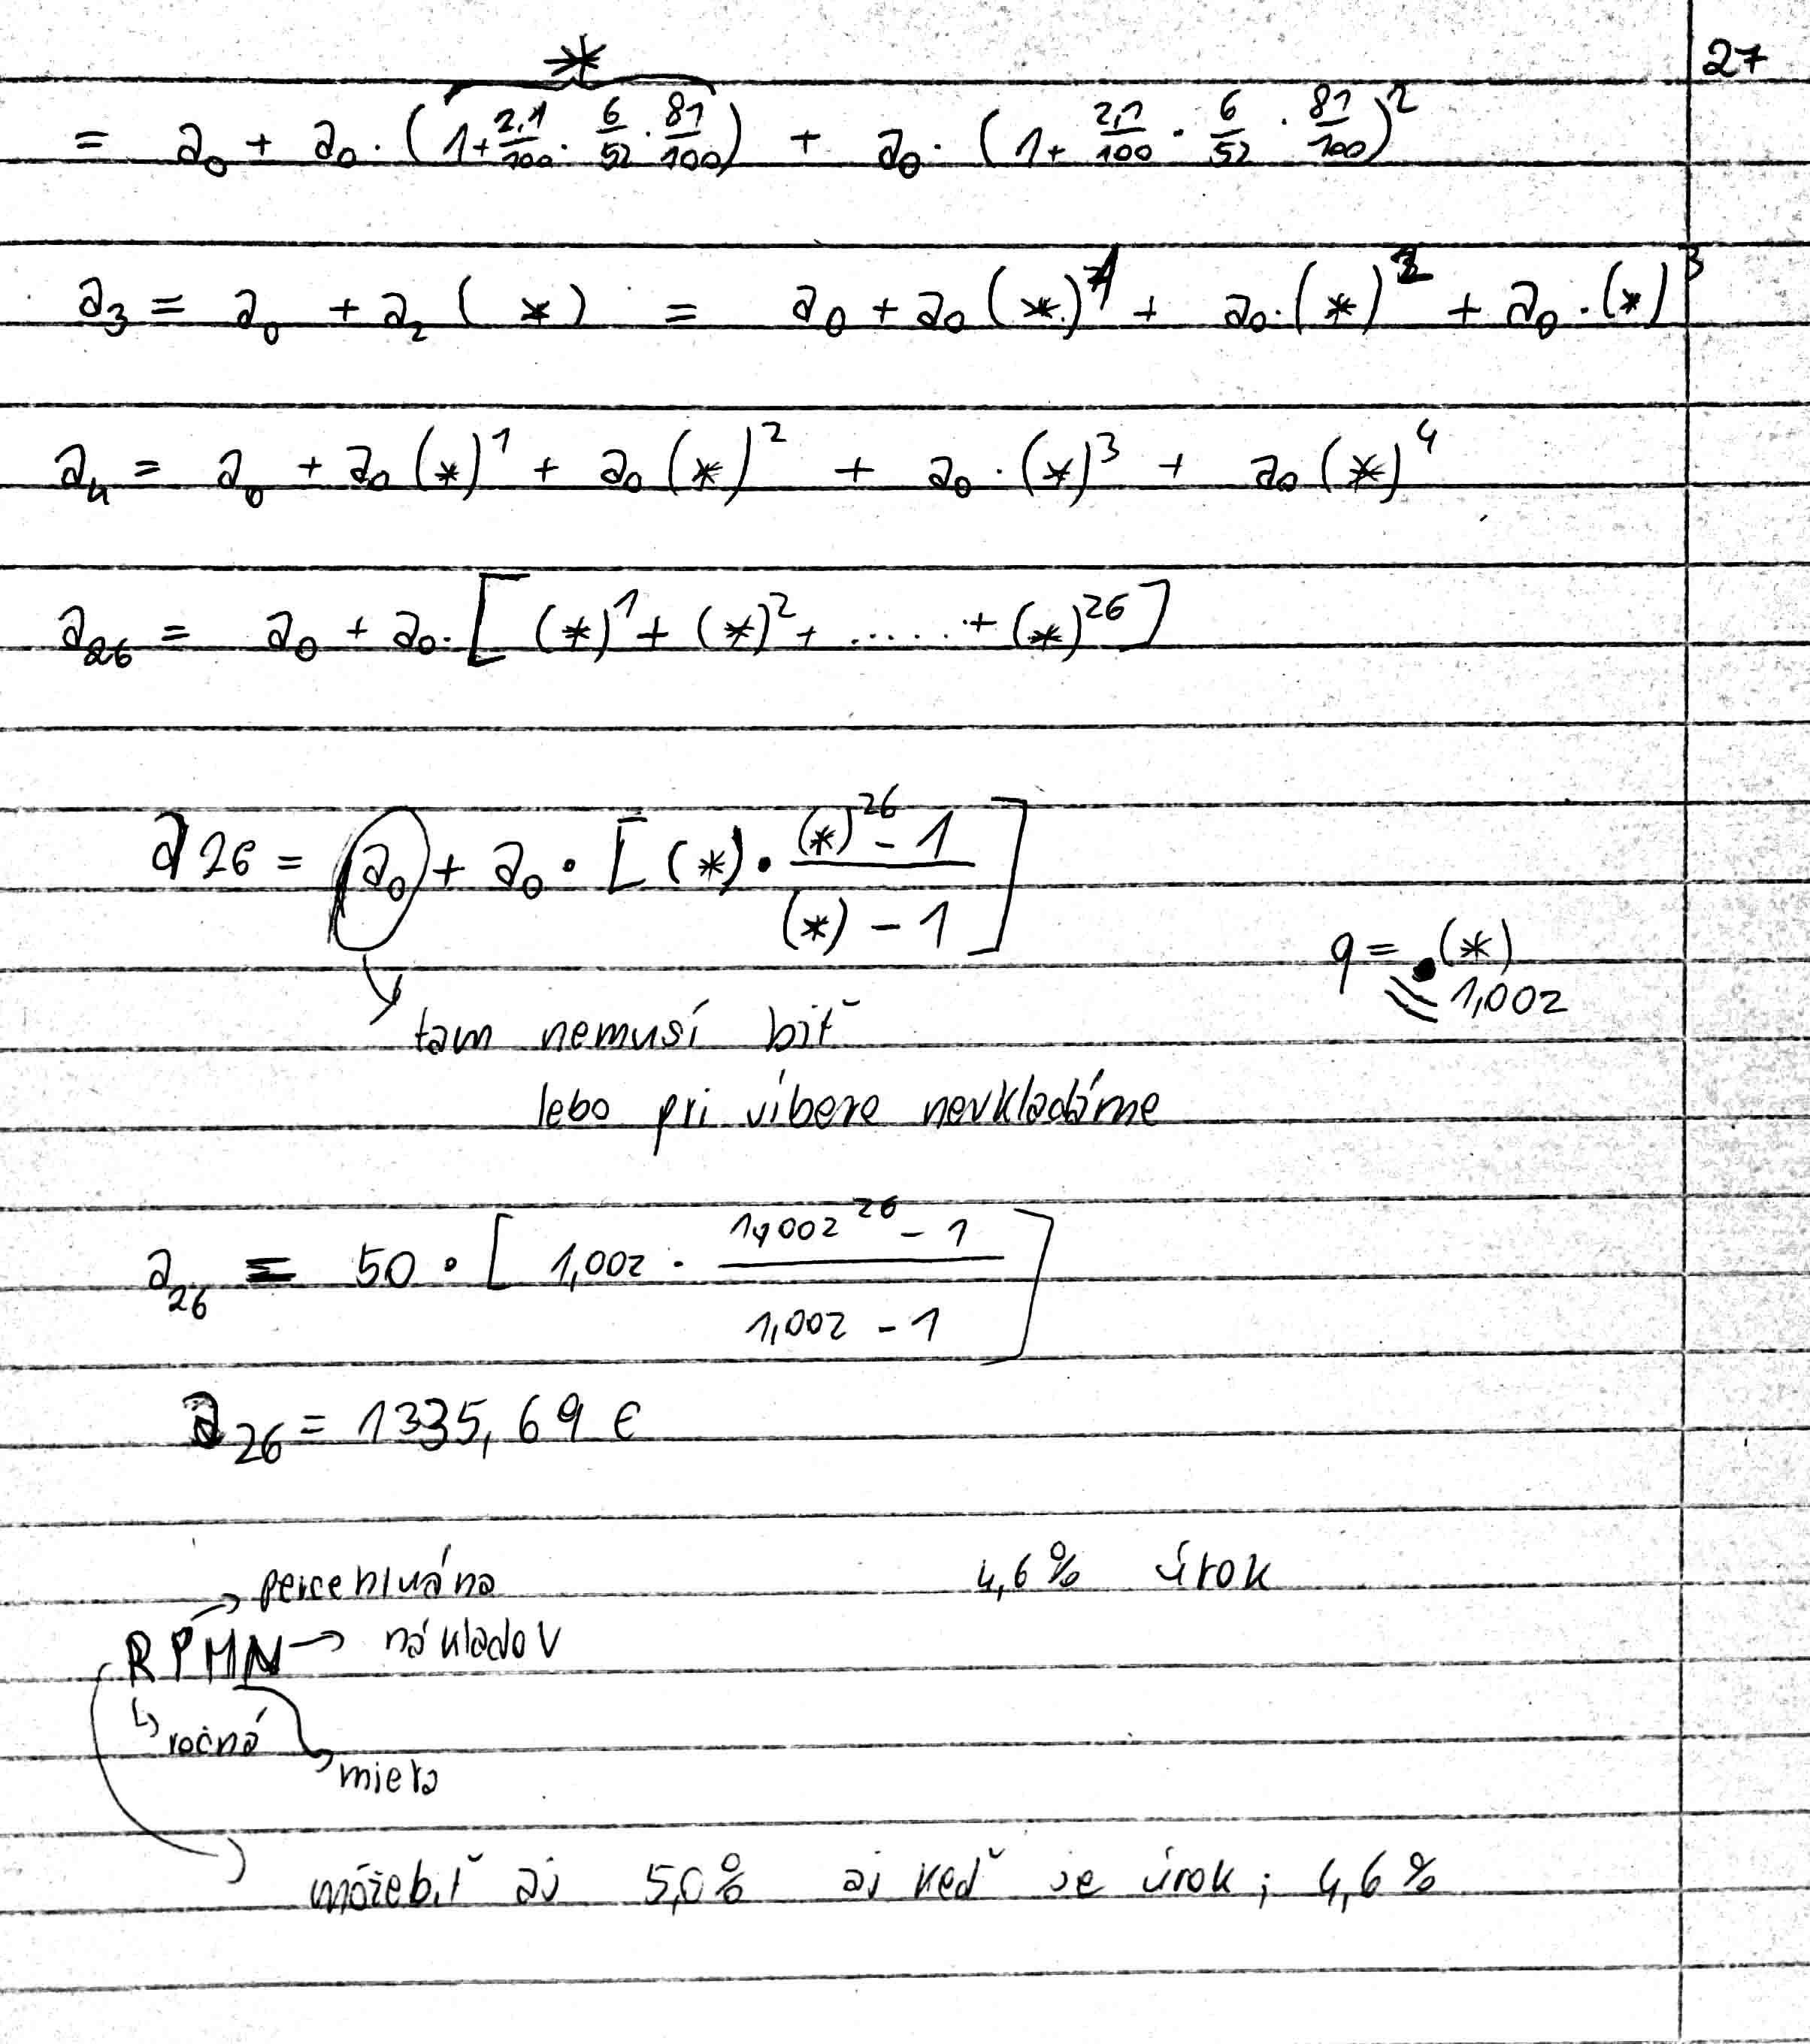 27
*
= a₀ + a₀ · (1 + 2,1/100 · 6/52 · 81/100) + a₀ · (1 + 2,1/100 · 6/52 · 81/100)²
a₃ = a₀ + a₂ (*) = a₀ + a₀ (*)¹ + a₀ · (*)² + a₀ · (*)³
a₄ = a₀ + a₀ (*)¹ + a₀ (*)² + a₀ · (*)³ + a₀ (*)⁴
a₂₆ = a₀ + a₀ · [ (*)¹ + (*)² + ...... + (*)²⁶ ]
a₂₆ = a₀ + a₀ · [ (*) · ((*)²⁶ - 1)/((*) - 1) ]
q = (*)
1,002
tam nemusí biť
lebo pri víbere nevkladáme
a₂₆ = 50 · [ 1,002 · (1,002²⁶ - 1)/(1,002 - 1) ]
a₂₆ = 1335,69 €
→ percentuána
4,6% úrok
RPMN → nákladov
↳ ročná
miera
môžebiť aj 5,0% aj keď je úrok ; 4,6%